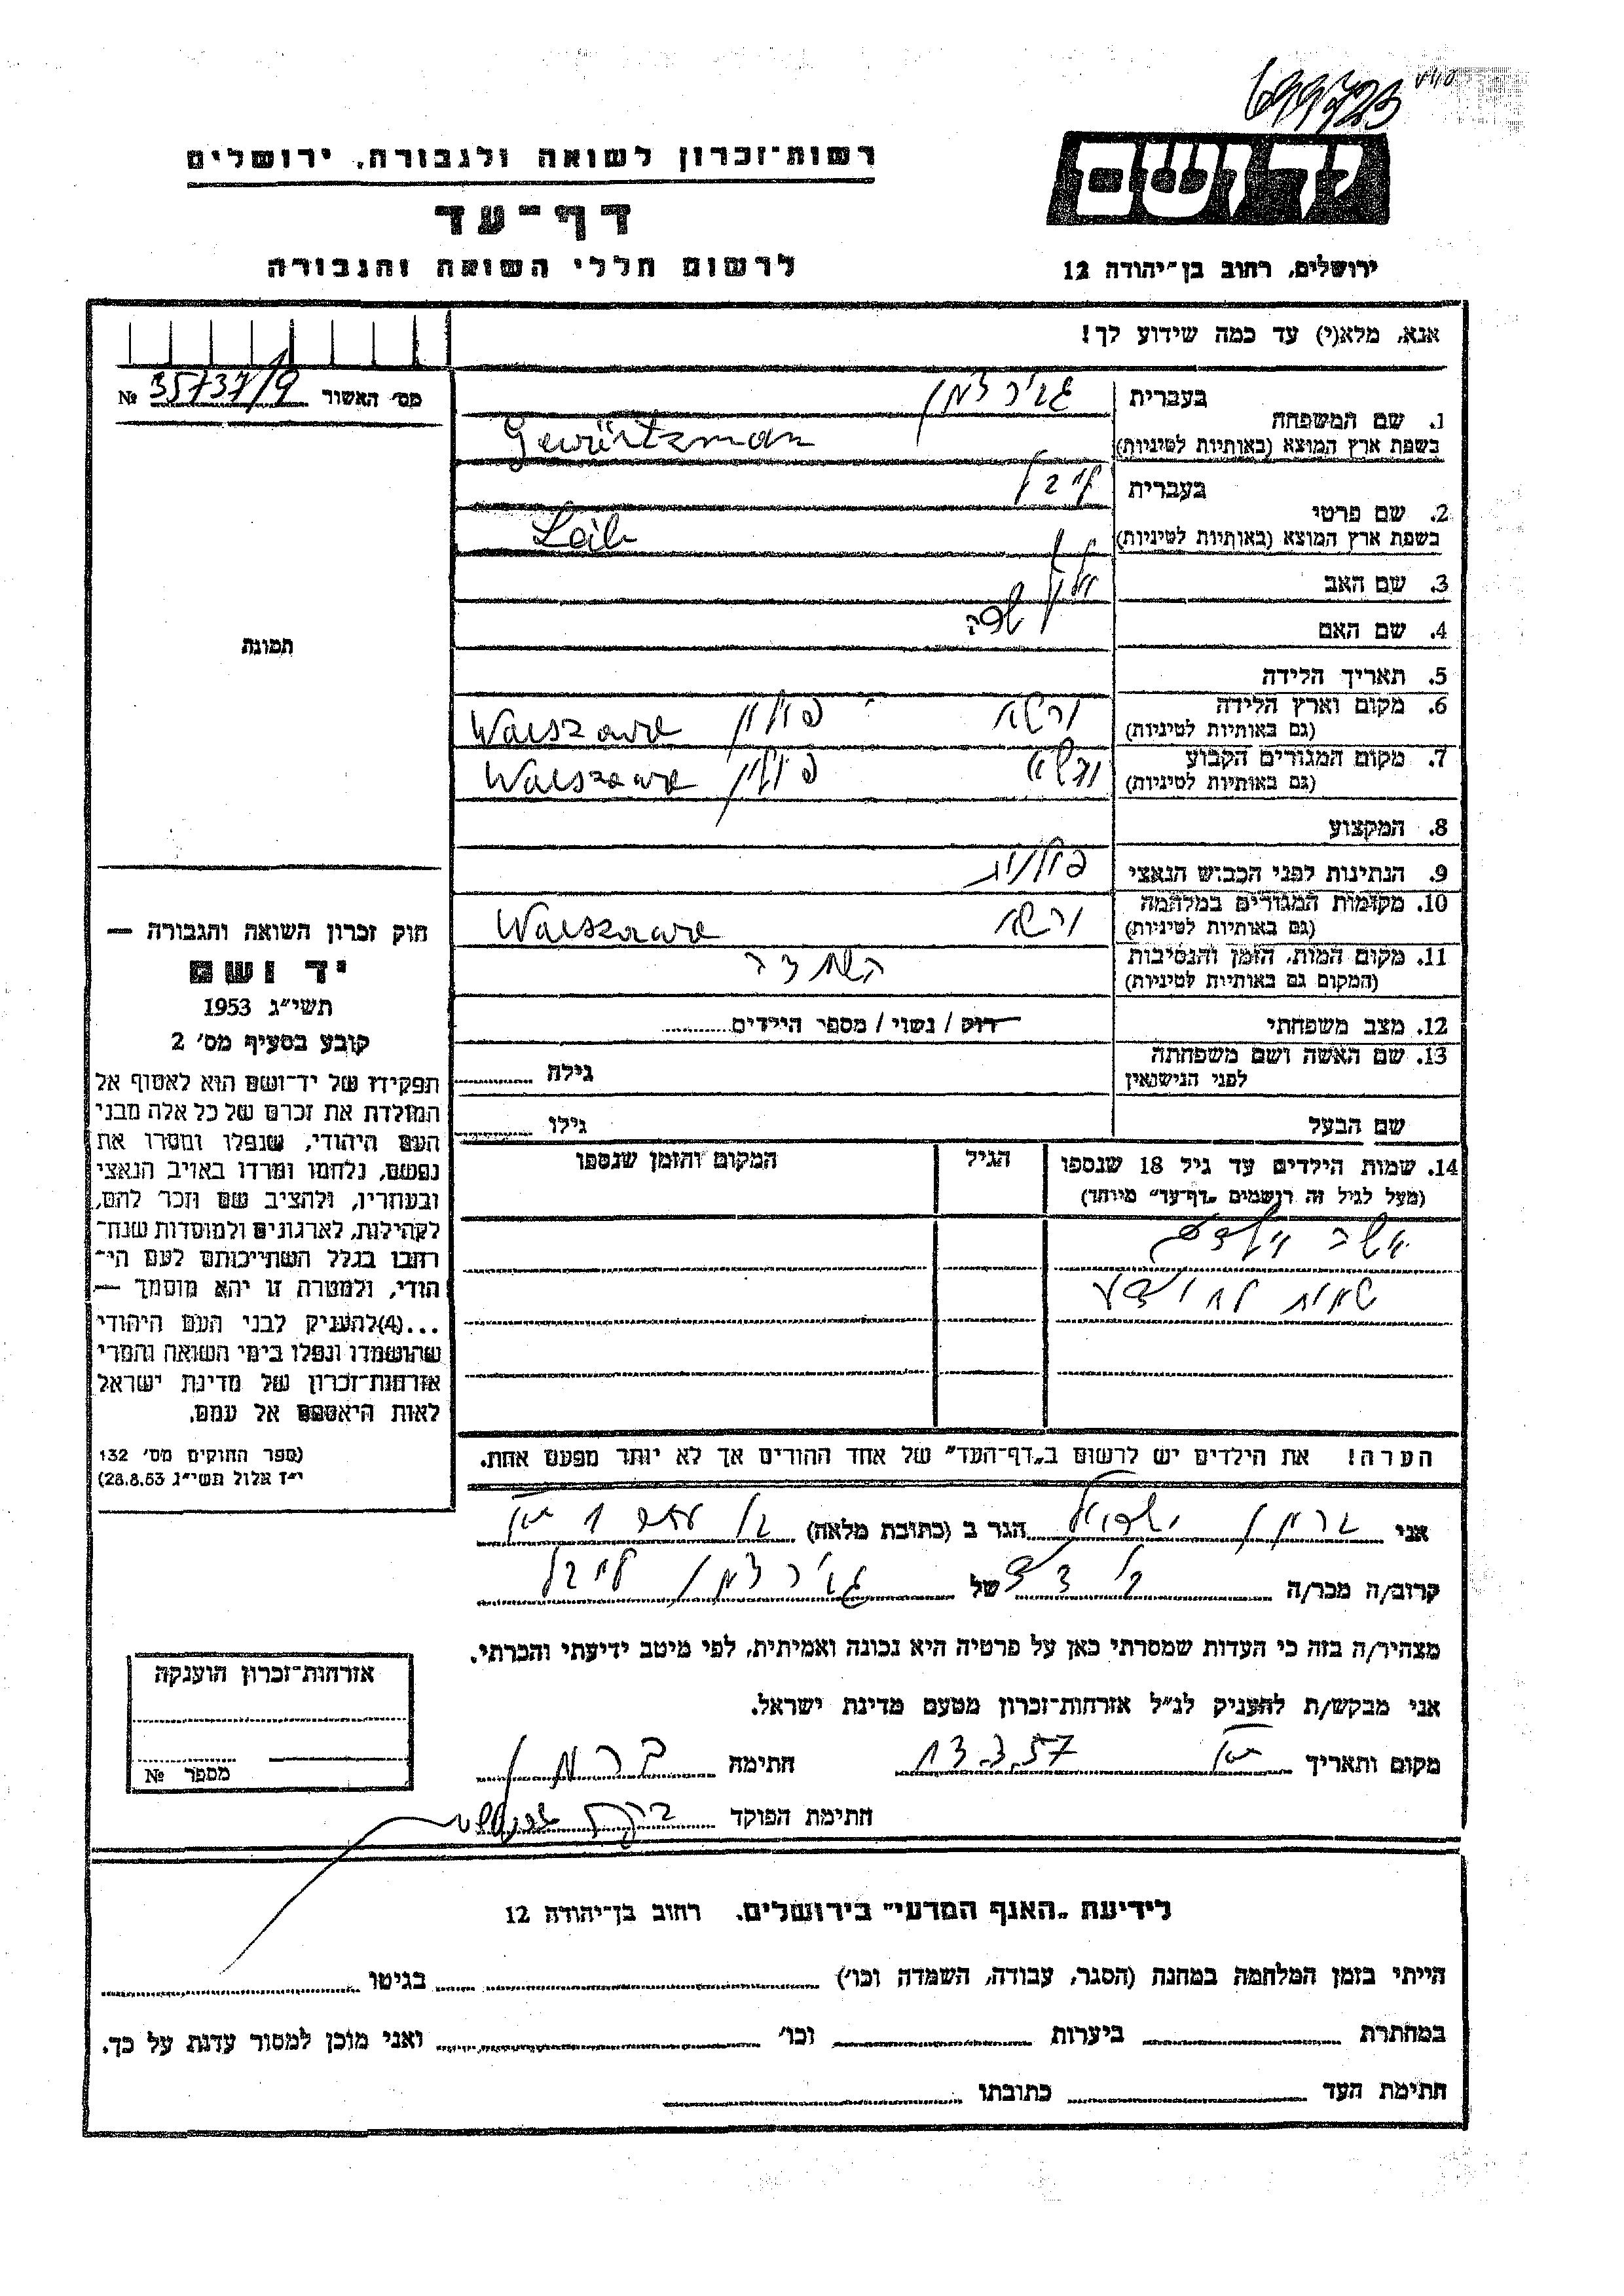 699723
יד ושם
רשות־זכרון לשואה ולגבורה, ירושלים
דף־עד
לרשום חללי השואה והגבורה
ירושלים, רחוב בן־יהודה 12
אנא, מלא(י) עד כמה שידוע לך!
מס' האשור 35737/9 №
1. שם המשפחה
בעברית
בשפת ארץ המוצא (באותיות לטיניות) Gewürtzman
2. שם פרטי
בעברית לייבל
בשפת ארץ המוצא (באותיות לטיניות) Leib
3. שם האב
4. שם האם
5. תאריך הלידה
6. מקום וארץ הלידה
(גם באותיות לטיניות) ורשא פולין Warszawa
7. מקום המגורים הקבוע
(גם באותיות לטיניות) ורשא פולין Warszawa
8. המקצוע
9. הנתינות לפני הכבוש הנאצי פולנית
10. מקומות המגורים במלחמה
(גם באותיות לטיניות) ורשא Warszawa
11. מקום המות, הזמן והנסיבות
(המקום גם באותיות לטיניות)
12. מצב משפחתי רוק / נשוי / מספר הילדים
13. שם האשה ושם משפחתה
לפני הנישואין גילה
שם הבעל גילו
14. שמות הילדים עד גיל 18 שנספו הגיל המקום והזמן שנספו
(מעל לגיל זה רושמים „דף־עד” מיוחד)
הערה! את הילדים יש לרשום ב„דף־העד” של אחד ההורים אך לא יותר מפעם אחת.
תמונה
חוק זכרון השואה והגבורה —
יד ושם
תשי״ג 1953
קובע בסעיף מס' 2
תפקידו של יד־ושם הוא לאסוף אל
המולדת את זכרם של כל אלה מבני
העם היהודי, שנפלו ומסרו את
נפשם, נלחמו ומרדו באויב הנאצי
ובעוזריו, ולהציב שם וזכר להם,
לקהילות, לארגונים ולמוסדות שנח־
רבו בגלל השתייכותם לעם הי־
הודי, ולמטרה זו יהא מוסמך —
...(4)להעניק לבני העם היהודי
שהושמדו ונפלו בימי השואה והמרי
אזרחות־זכרון של מדינת ישראל
לאות היאספם אל עמם.
(ספר החוקים מס' 132
י״ז אלול תשי״ג 28.8.53)
אני ברמן הגר ב (כתובת מלאה)
קרוב/ה מכר/ה של לייבל
מצהיר/ה בזה כי העדות שמסרתי כאן על פרטיה היא נכונה ואמיתית, לפי מיטב ידיעתי והכרתי.
אני מבקש/ת להעניק לנ״ל אזרחות־זכרון מטעם מדינת ישראל.
מקום ותאריך 13.3.57 חתימה ברמן
חתימת הפוקד
אזרחות־זכרון הוענקה
מספר №
לידיעת „האגף המדעי” בירושלים, רחוב בן־יהודה 12
הייתי בזמן המלחמה במחנה (הסגר, עבודה, השמדה וכו') בגיטו
במחתרת ביערות וכו' ואני מוכן למסור עדות על כך.
חתימת העד כתובתו